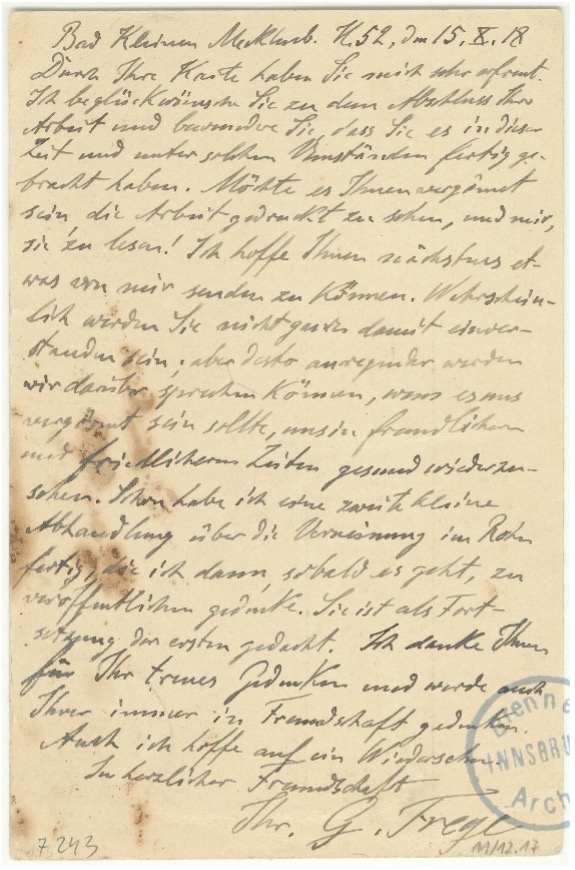 Bad Kleinen Mecklenb. H. 52, den 15. X. 18
Durch Ihre Karte haben Sie mich sehr erfreut.
Ich beglückwünsche Sie zu dem Abschluss Ihrer
Arbeit und bewundere Sie, dass Sie es in dieser
Zeit und unter solchen Umständen fertig ge-
bracht haben. Möchte es Ihnen vergönnt
sein, die Arbeit gedruckt zu sehen, und mir,
sie zu lesen! Ich hoffe Ihnen nächstens et-
was von mir senden zu können. Wahrschein-
lich werden Sie nicht ganz damit einver-
standen sein; aber desto anregender werden
wir darüber sprechen können, wenn es uns
vergönnt sein sollte, uns in freundlichern
und friedlichern Zeiten gesund wiederzu-
sehen. Schon habe ich eine zweite kleine
Abhandlung über die Verneinung im Rohn
fertig, die ich dann, sobald es geht, zu
veröffentlichen gedenke. Sie ist als Fort-
setzung der ersten gedacht. Ich danke Ihnen
für Ihr treues Gedenken und werde auch
Ihrer immer in Freundschaft gedenken.
Auch ich hoffe auf ein Wiedersehen.
In herzlicher Freundschaft
Ihr. G. Frege
Brenne
INNSBRU
Arch
7243
11/12.17